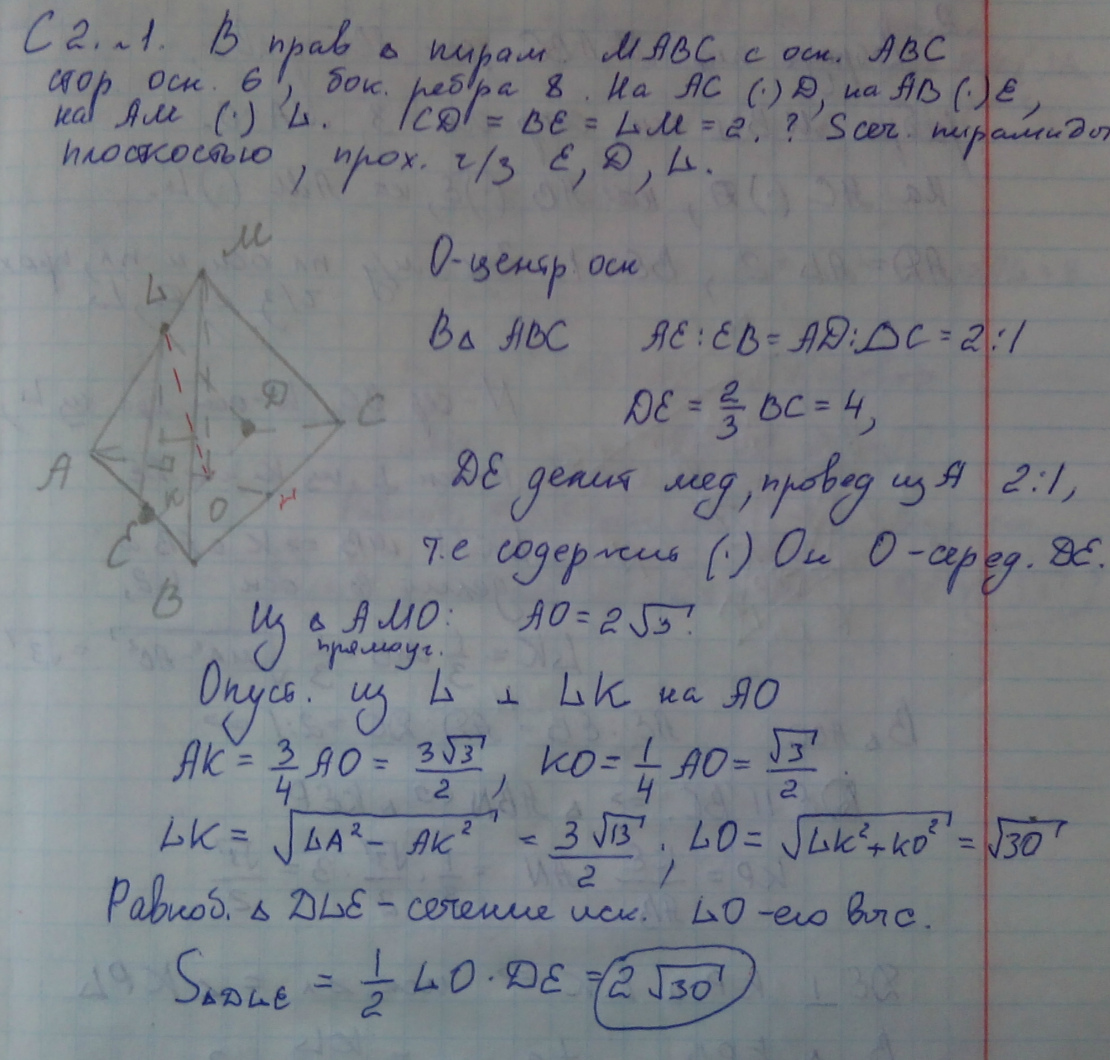 С2. №1. В прав △ пирам MABC с осн. ABC
стор осн. 6, бок. ребра 8. На AC (·) D, на AB (·) E,
на AM (·) L. CD = BE = LM = 2. ? Sсеч. пирамиды
плоскостью, прох. ч/з E, D, L.
M
L
D
C
A
K
O
E
B
O-центр осн
В △ ABC AE:EB = AD:DC = 2:1
DE = 2/3 BC = 4,
DE делит мед, провед из A 2:1,
т.е содержит (·) O и O-серед. DE.
Из △ AMO: AO = 2√3.
прямоуг.
Опуст. из L ⊥ LK на AO
AK = 3/4 AO = 3√3/2, KO = 1/4 AO = √3/2.
LK = √(LA² - AK²) = 3√13/2; LO = √(LK² + KO²) = √30
Равноб. △ DLE - сечение иск. LO - его выс.
S△DLE = 1/2 LO · DE = 2√30